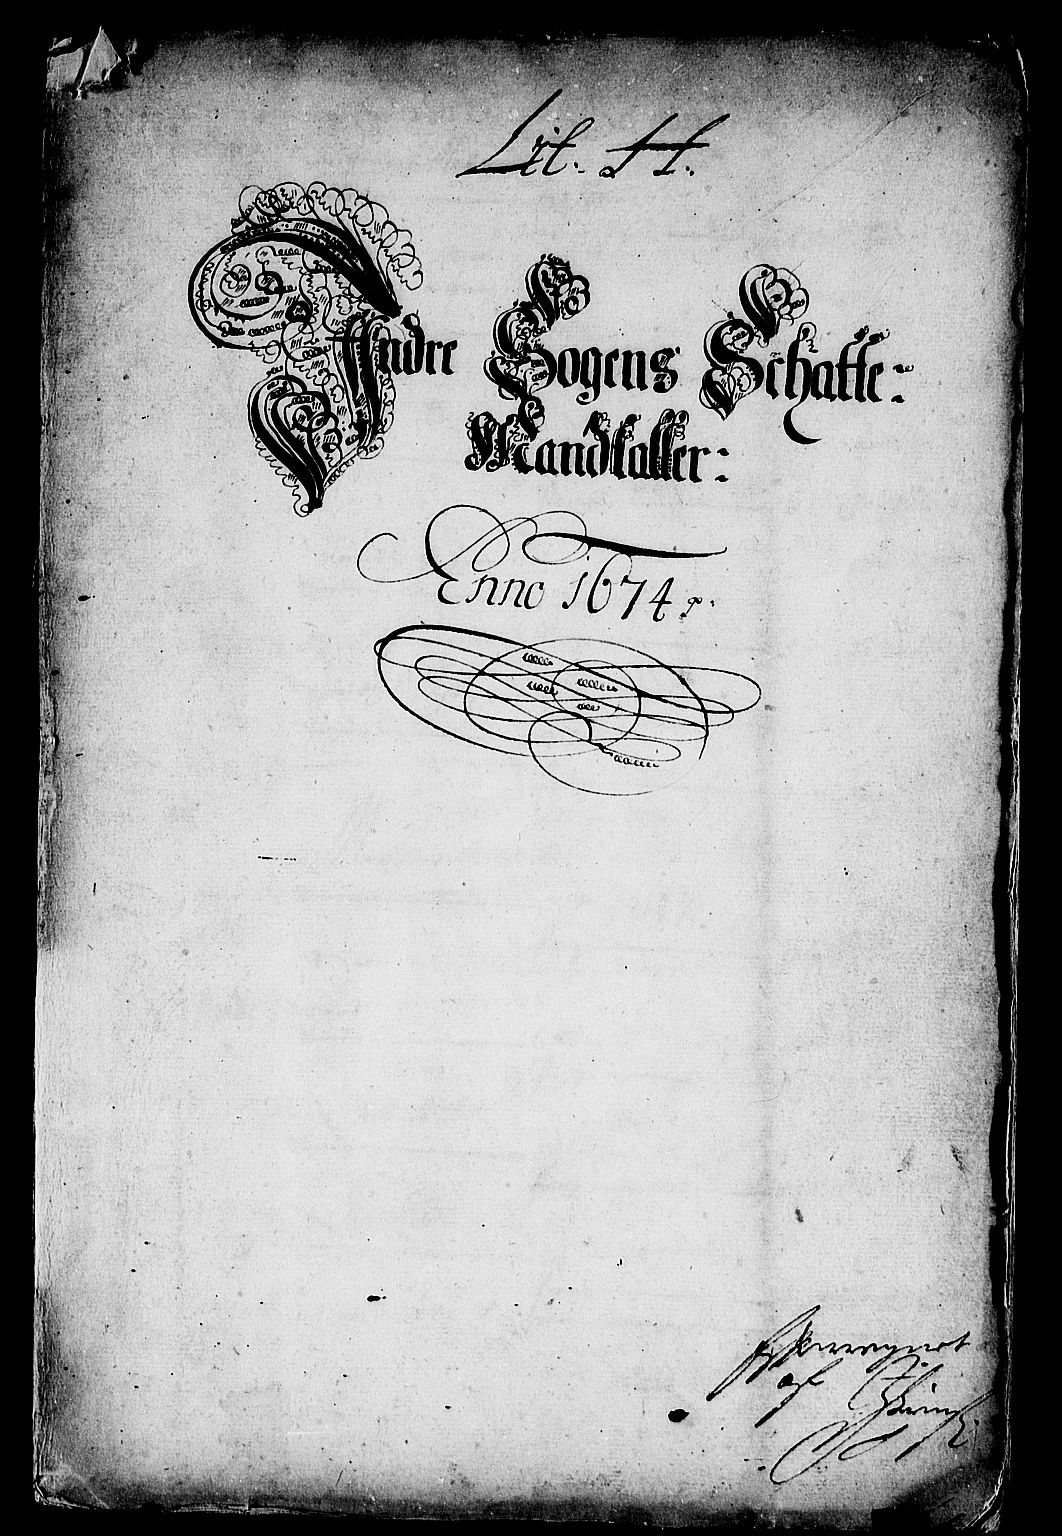 Lit. H.
Andre Sogens Schatte:
Mandtaller:
Anno 1674
af